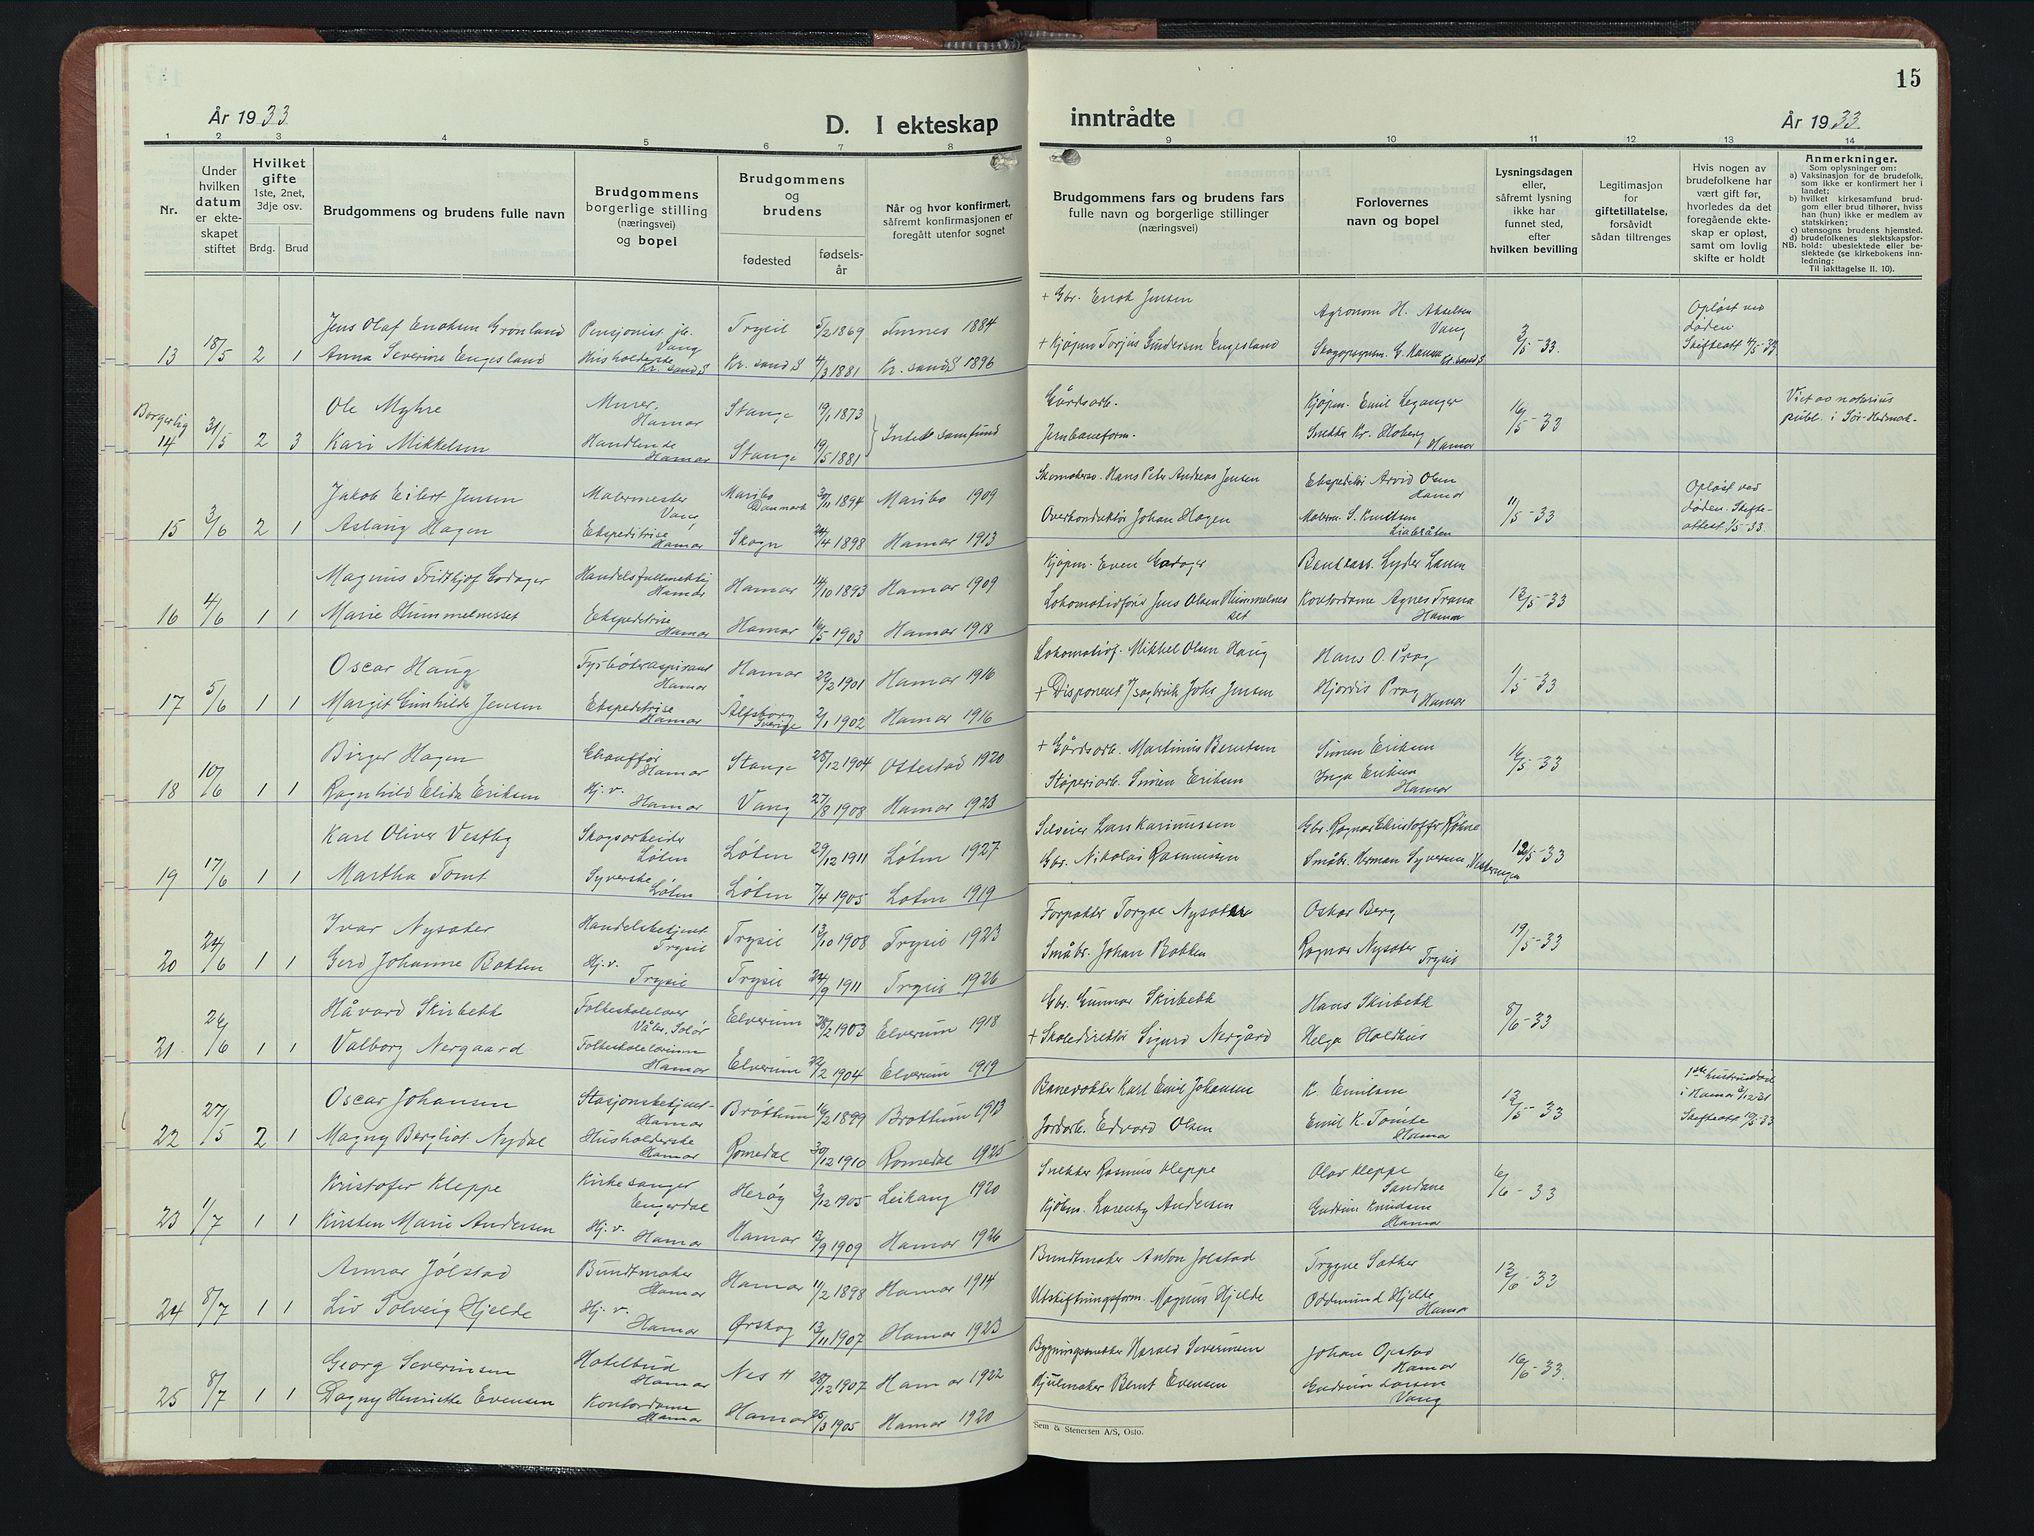 15
År 1933
D. I ekteskap
inntrådte
År 1933
1 2 3 4 5 6 7 8 9 10 11 12 13 14
Nr.
Under
hvilken
datum
er ekte-
skapet
stiftet
Hvilket
gifte
1ste, 2net,
3dje osv.
Brdg. Brud
Brudgommens og brudens fulle navn
Brudgommens
borgerlige stilling
(næringsvei)
og bopel
Brudgommens
og
brudens
fødested
fødsels-
år
Når og hvor konfirmert,
såfremt konfirmasjonen er
foregått utenfor sognet
Brudgommens fars og brudens fars
fulle navn og borgerlige stillinger
(næringsvei)
Forlovernes
navn og bopel
Lysningsdagen
eller,
såfremt lysning
ikke har
funnet sted,
efter
hvilken bevilling
Legitimasjon
for
giftetillatelse,
forsåvidt
sådan tiltrenges
Hvis nogen av
brudefolkene har
vært gift før,
hvorledes da det
foregående ekte-
skap er opløst,
samt om lovlig
skifte er holdt
Anmerkninger.
Som oplysninger om:
a) Vaksinasjon for de brudefolk,
som ikke er konfirmert her i
landet;
b) hvilket kirkesamfund brud-
gom eller brud tilhører, hviss
han (hun) ikke er medlem av
statskirken;
c) utensogns brudens hjemsted.
d) brudefolkenes slektskapsfor-
NB. hold: ubeslektede eller be-
slektede (se kirkebokens inn-
ledning:
Til iakttagelse II. 10).
Jens Olaf Enoksen Grønland Pensjonist Vang Trysil 5/2 1869 Furnes 1884 + Gbr. Enok Jensen Agronom H. Akselsen Vang Opløst ved døden.
13 18/5 2 1 Anna Severine Engesland Kr.sand S Kr. sand S 4/3 1881 Kr. sand S 1896 + Kjøpm Torjus Gundersen Engesland Kr.sand S 3/5-33. Skifteatt 4/5-33
Borgerlig Ole Myhre Murer, Hamar Stange 19/1 1873 Gårdsarb. Kjøpm. Emil Leganger Viet av notarius
14 31/5 2 3 Kari Mikkelsen Handlende Hamar Stange 19/5 1881 Intet samfund Jernbaneform. Snekker Kr. Hoberg Hamar 16/5-33 publ. i Sør-Hedmark-
Jakob Eilert Jensen Malermester Vang Maribo Danmark 30/11 1894 Maribo 1909 Hans Petr Andreas Jensen Ekspeditør Arvid Olsen Hamar Opløst ved
15 3/6 2 1 Aslaug Hagen Ekspeditrise Hamar Skogn 24/4 1898 Hamar 1913 Overkonduktør Johan Hagen Malerm. S. Knutsen 11/5-33 døden. Skifte-
attest 1/5-33.
Magnus Fridthjof Godager Handelsfullmektig Hamar Hamar 14/10 1893 Hamar 1909 Kjøpm. Even Godager
16 4/6 1 1 Marie Hummelnesset Ekspeditrise Hamar Hamar 16/5 1903 Hamar 1918 Jens Olsen Hummelnesset Kontordame Agnes Trana Hamar 12/5-33
Oscar Haug Fyrbøteraspirant Hamar Hamar 22/2 1901 Hamar 1916 Lokomotivf. Mikkel Olsen Haug Hans O. Prag
17 5/6 1 1 Margit Gunhilda Jensen Ekspeditrise Hamar Älfsborg Sverige 2/1 1902 Hamar 1916 + Disponent Johs Jensen Hjørdis Prag Hamar 1/5-33
Birger Hagen Chauffør Hamar Stange 28/12 1904 Ottestad 1920 + Gårdsarb. Martinius Berntsen Simen Eriksen
18 10/6 1 1 Ragnhild Elida Eriksen Hj. v. Hamar Vang 27/8 1908 Hamar 1923 Støperiarb. Simen Eriksen Inga Eriksen Hamar 16/5-33
Karl Oliver Vestby Skogsarbeider Løten Løten 29/12 1911 Løten 1927 Selveier Lars Karinussen Gbr. Ragnar Kristoffer Røhne
19 17/6 1 1 Martha Tomt Syerske Løten Løten 7/4 1905 Løten 1919 Gbr. Nikolai Rasmussen Småbr. Herman Syversen 12/5-33
Ivar Nysæter Handelsbetjent Trysil Trysil 13/10 1908 Trysil 1923 Forpakter Torgal Nysæter Oskar Berg
20 24/6 1 1 Gerd Johanne Bakken Hj. v. Trysil Trysil 24/9 1911 Trysil 1926 Småbr. Johan Bakken Ragnar Nysæter Trysil 19/5-33
Håvard Skirbekk Folkeskolelærer Våler, Solør Elverum 28/2 1903 Elverum 1918 Gbr. Gunnar Skirbekk Hans Skirbekk
21 26/6 1 1 Valborg Nergaard Folkeskolelærerinne Hamar Elverum 22/2 1904 Elverum 1919 + Skoledirektør Sigurd Nergård Helga Holdhus 8/6-33
Oscar Johansen Stasjonsbetjent Hamar Brøttum 16/2 1899 Brøttum 1913 Banevokter Karl Emil Johansen K. Emilsen i Hamar
22 27/5 2 1 Magny Bergliot Nydal Husholderske Hamar Romedal 30/12 1910 Romedal 1925 Jordarb. Edvard Olsen Emil K. Tømte Hamar 12/5-33 Skifteatt 12/5-33
Kristofer Kleppe Kirkesanger Engerdal Herøy 3/12 1905 Leikang 1920 Snekker Rasmus Kleppe Olav Kleppe Sandane
23 1/7 1 1 Kirsten Marie Andersen Hj. v. Hamar Hamar 13/9 1909 Hamar 1926 Kjøbm. Lorentz Andersen Gudrun Knudsen Hamar 6/6-33
Annar Jølstad Bundtmaker Hamar Hamar 11/2 1898 Hamar 1914 Bundtmaker Anton Jølstad Trygve Sæther
24 8/7 1 1 Liv Solveig Hjelde Hj. v. Hamar Ørskog 13/11 1907 Hamar 1923 Utskiftningsform. Magnus Hjelde Oddmund Hjelde Hamar 13/6-33
Georg Severinsen Hotelbud Hamar Nes H 28/12 1907 Hamar 1922 Bygningssnekker Harald Severinsen Johan Opstad Hamar
25 8/7 1 1 Dagny Henriette Evensen Kontordame Hamar Hamar 25/3 1905 Hamar 1920 Hjulmaker Bernt Evensen Gudrun Larsen Vang 16/6-33.
Sem & Stenersen A/S, Oslo.